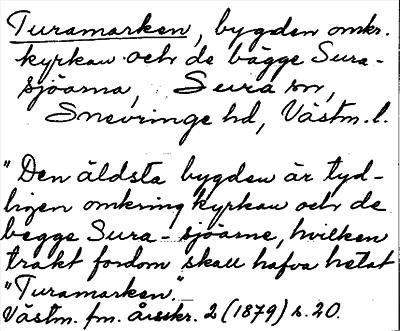 Turamarken, bygden omkr.
kyrkan och de bägge Sura-
sjöarna, Sura sn,
Snevringe hd, Västm. l.
"Den äldsta bygden är tyd-
ligen omkring kyrkan och de
begge Sura-sjöarne, hvilken
trakt fordom skall hafva hetat
"Turamarken".
Västm. fm. årsskr. 2 (1879) s. 20.